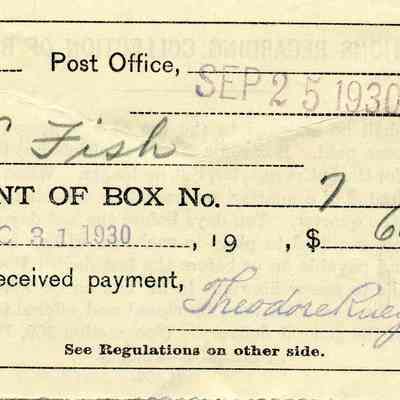 Post Office,
SEP 25 1930
Fish
NT OF BOX No. 7
C 31 1930, 19 , $ 6
eceived payment, Theodore
See Regulations on other side.